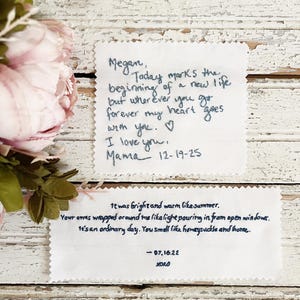 Megan,
Today marks the
beginning of a new life
but wherever you go
forever my heart goes
with you. ♡
I love you.
Mama 12-19-25
It was bright and warm like summer.
Your arms wrapped around me like light pouring in from open windows.
It's an ordinary day. You smell like honeysuckle and home.
— 07.16.22
xoxo